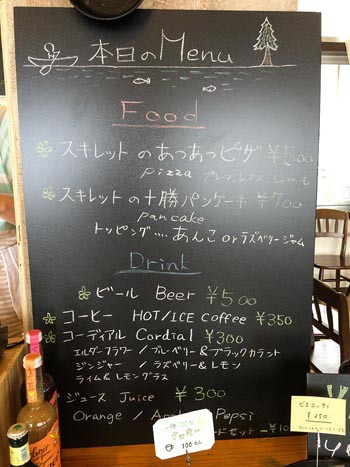 本日のMenu
Food
スキレットのあつあつピザ ¥500
pizza プレーン
スキレットの十勝パンケーキ ¥700
pancake
トッピング‥‥あんこ or ラズベリージャム
Drink
ビール Beer ¥500
コーヒー HOT/ICE Coffee ¥350
コーディアル Cordial ¥300
エルダーフラワー / ブルーベリー&ブラックカラント
ジンジャー / ラズベリー&レモン
ライム&レモングラス
ジュース Juice ¥300
Orange / Pepsi
ドセット
100
¥250